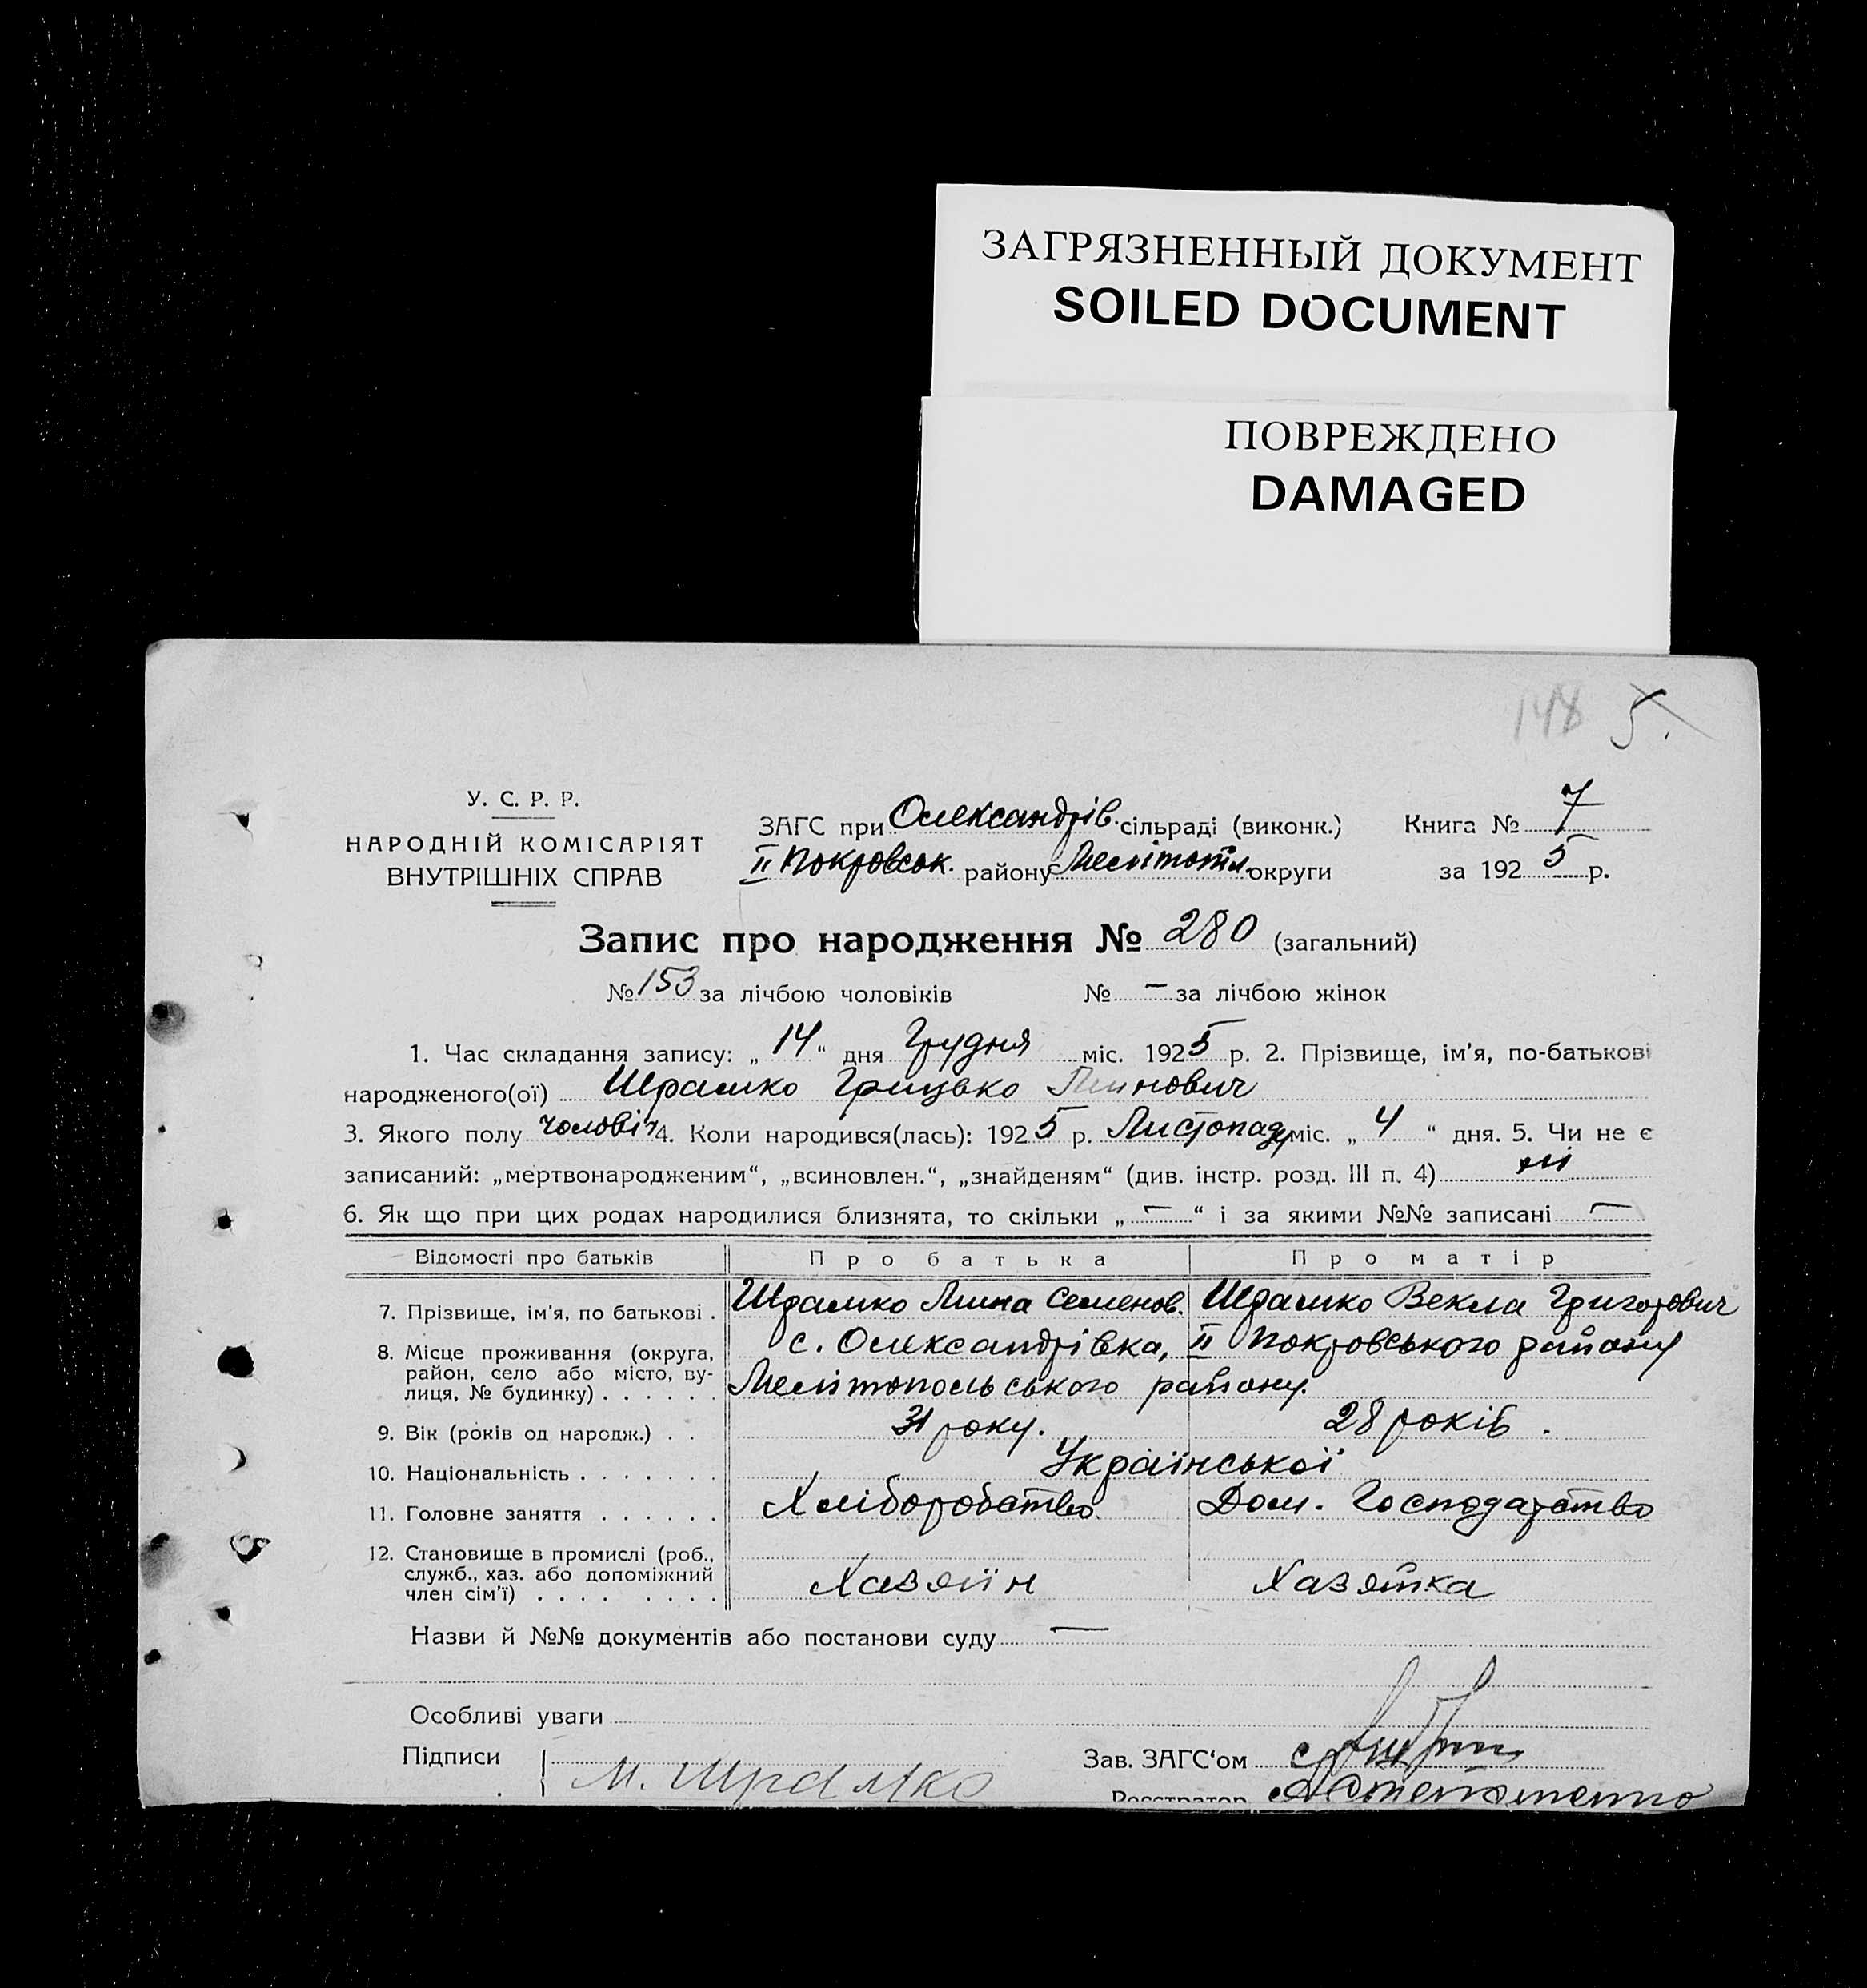 ЗАГРЯЗНЕННЫЙ ДОКУМЕНТ
SOILED DOCUMENT
ПОВРЕЖДЕНО
DAMAGED
148 5.
У. С. Р. Р.
НАРОДНІЙ КОМІСАРІЯТ
ВНУТРІШНІХ СПРАВ
ЗАГС при Олександрів. сільраді (виконк.) Книга № 7
II Покровськ. району Мелітопл. округи за 1925 р.
Запис про народження № 280 (загальний)
№ 153 за лічбою чоловіків № — за лічбою жінок
1. Час складання запису: „14“ дня Грудня міс. 1925 р. 2. Прізвище, ім'я, по-батькові
народженого(ої) Шрамко Грицько Пинович
3. Якого полу чоловіч 4. Коли народився(лась): 1925 р. Листопаду міс. „4“ дня. 5. Чи не є
записаний: „мертвонародженим“, „всиновлен.“, „знайденям“ (див. інстр. розд. III п. 4) ні
6. Як що при цих родах народилися близнята, то скільки „—“ і за якими №№ записані —
Відомості про батьків Про батька Про матір
7. Прізвище, ім'я, по батькові . Шрамко Семенов. Шрамко Векла Григорович
8. Місце проживання (округа, с. Олександрівка, II Покровського району
район, село або місто, ву-
лиця, № будинку) . . . . . . Мелітопольського району.
9. Вік (років од народж.) . . 31 року. 28 років.
10. Національність . . . . . . . Української
11. Головне заняття . . . . . . Хліборобство Дом. Господарство
12. Становище в промислі (роб.,
служб., хаз. або допоміжний Хазяїн Хазяйка
член сім'ї) . . . . . . . .
Назви й №№ документів або постанови суду —
Особливі уваги
Підписи Зав. ЗАГС‘ом
М. Шрамко Реєстратор